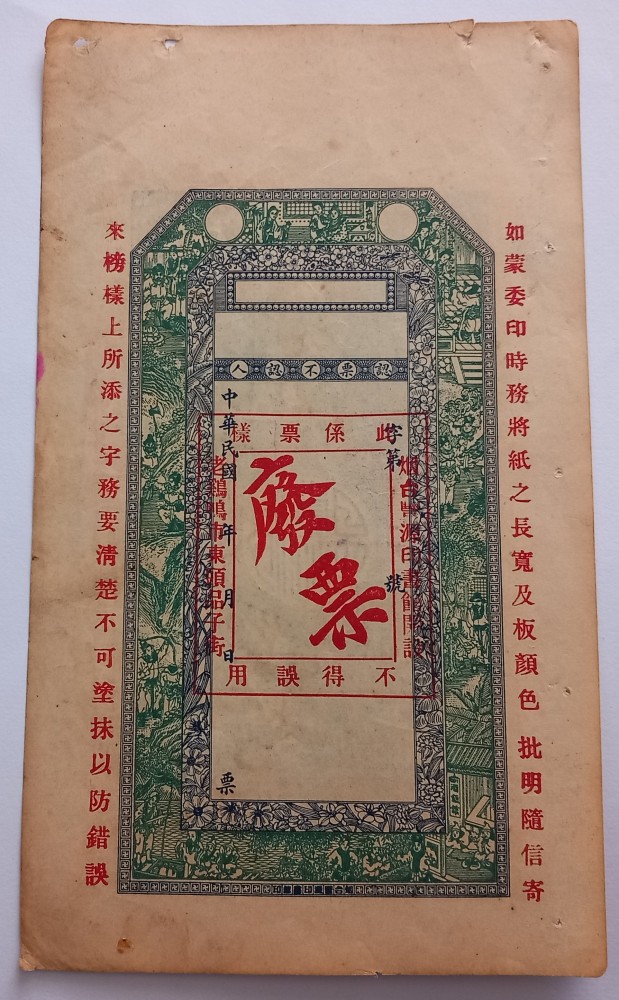 如蒙委印時務將紙之長寬及板顏色批明隨信寄
來榜樣上所添之字務要清楚不可塗抹以防錯誤
認票不認人
此係票樣
字第
號
烟台豐源印書館開設
老鸛鴣市東頭品子街
廢票
不得誤用
中華民國年月日
票